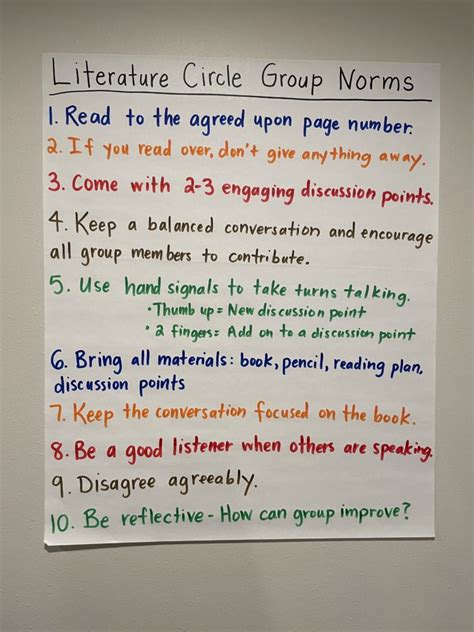 Literature Circle Group Norms
1. Read to the agreed upon page number.
2. If you read over, don't give anything away.
3. Come with 2-3 engaging discussion points.
4. Keep a balanced conversation and encourage
all group members to contribute.
5. Use hand signals to take turns talking.
• Thumb up = New discussion point
• 2 fingers = Add on to a discussion point
6. Bring all materials: book, pencil, reading plan,
discussion points
7. Keep the conversation focused on the book.
8. Be a good listener when others are speaking.
9. Disagree agreeably.
10. Be reflective - How can group improve?